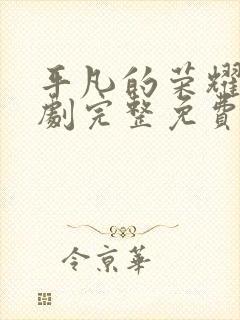 平凡的荣耀
劇完整免費
令京華